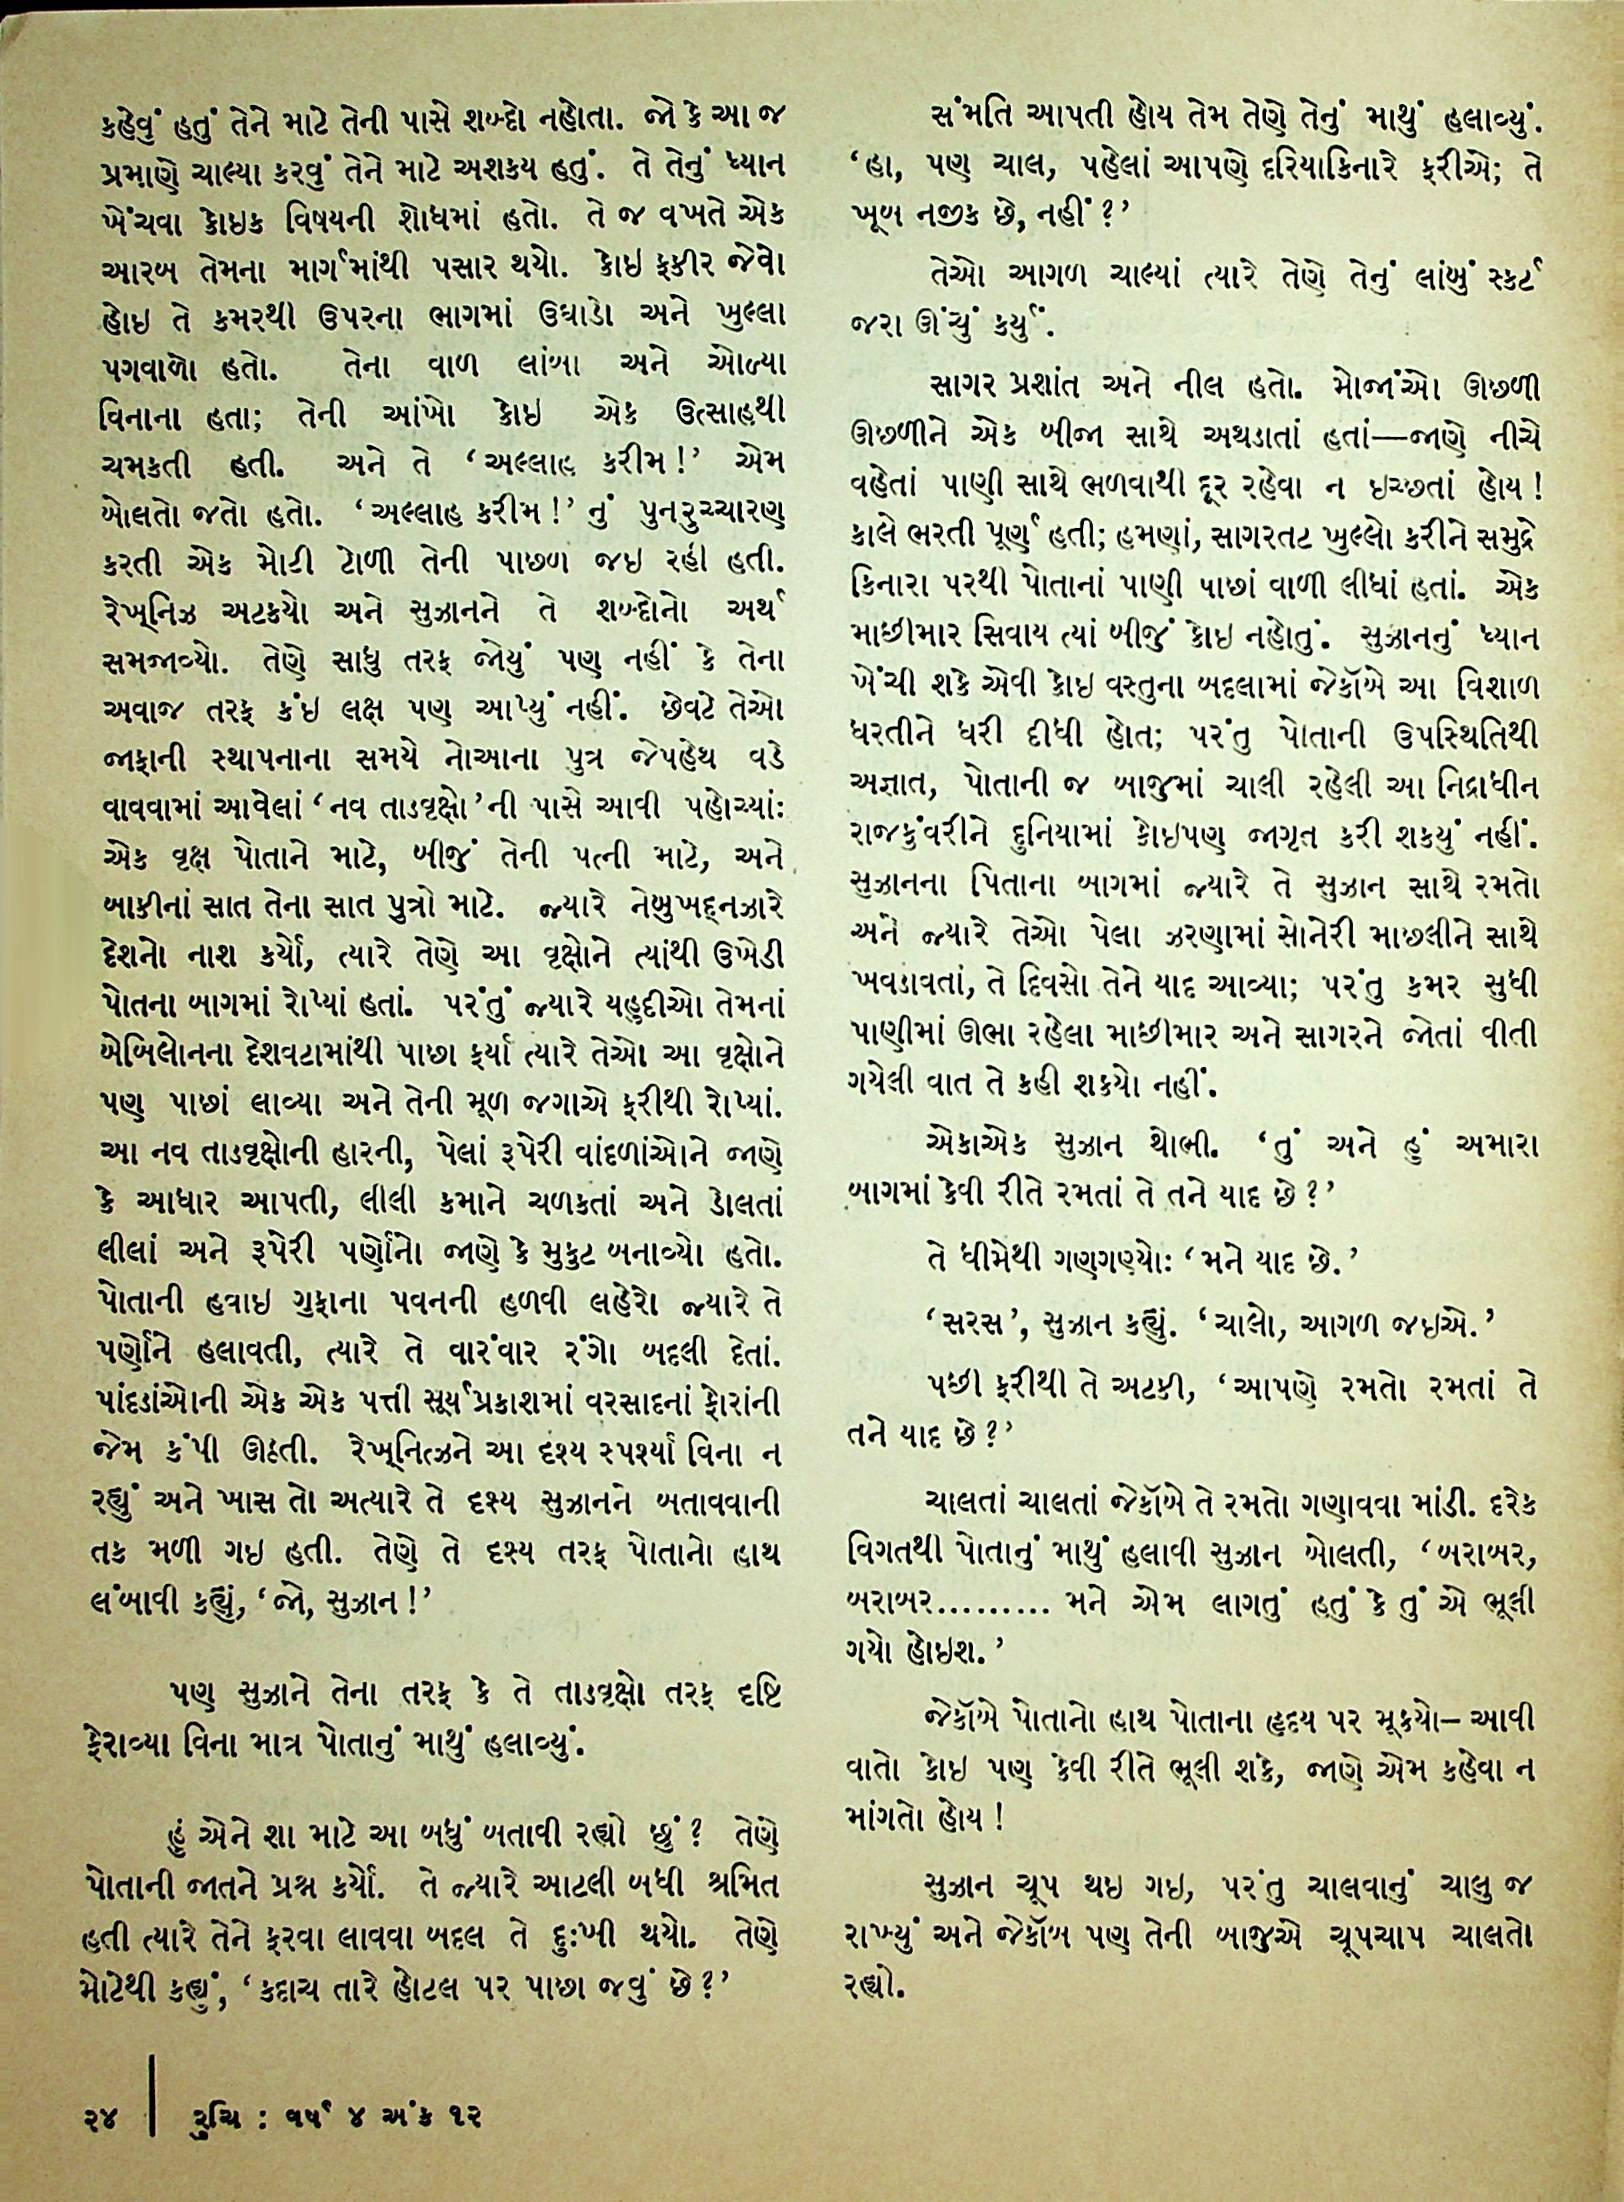 કહેવું હતું તેને માટે તેની પાસે શબ્દો નહોતા. જો કે આ જ
પ્રમાણે ચાલ્યા કરવું તેને માટે અશક્ય હતું. તે તેનું ધ્યાન
ખેંચવા કોઇક વિષયની શોધમાં હતો. તે જ વખતે એક
આરબ તેમના માર્ગમાંથી પસાર થયો. કોઇ ફકીર જેવો
હોઇ તે કમરથી ઉપરના ભાગમાં ઉઘાડો અને ખુલ્લા
પગવાળો હતો. તેના વાળ લાંબા અને ઓળ્યા
વિનાના હતા; તેની આંખો કોઇ એક ઉત્સાહથી
ચમકતી હતી. અને તે ‘અલ્લાહ કરીમ!’ એમ
બોલતો જતો હતો. ‘અલ્લાહ કરીમ!’ નું પુનરુચ્ચારણ
કરતી એક મોટી ટોળી તેની પાછળ જઇ રહી હતી.
રેખ્નિઝ અટક્યો અને સુઝાનને તે શબ્દોનો અર્થ
સમજાવ્યો. તેણે સાધુ તરફ જોયું પણ નહીં કે તેના
અવાજ તરફ કંઇ લક્ષ પણ આપ્યું નહીં. છેવટે તેઓ
જાફાની સ્થાપનાના સમયે નોઆના પુત્ર જેપહેથ વડે
વાવવામાં આવેલાં ‘નવ તાડવૃક્ષો’ની પાસે આવી પહોચ્યાં:
એક વૃક્ષ પોતાને માટે, બીજું તેની પત્ની માટે, અને
બાકીનાં સાત તેના સાત પુત્રો માટે. જ્યારે નેબુખદ્નઝારે
દેશનો નાશ કર્યો, ત્યારે તેણે આ વૃક્ષોને ત્યાંથી ઉખેડી
પોતના બાગમાં રોપ્યાં હતાં. પરંતું જ્યારે યહુદીઓ તેમનાં
બેબિલોનના દેશવટામાંથી પાછા ફર્યાં ત્યારે તેઓ આ વૃક્ષોને
પણ પાછાં લાવ્યા અને તેની મૂળ જગાએ ફરીથી રોપ્યાં.
આ નવ તાડવૃક્ષોની હારની, પેલાં રૂપેરી વાંદળાંઓને જાણે
કે આધાર આપતી, લીલી કમાને ચળકતાં અને ડોલતાં
લીલાં અને રૂપેરી પર્ણોનો જાણે કે મુકુટ બનાવ્યો હતો.
પોતાની હવાઇ ગુફાના પવનની હળવી લહેરો જ્યારે તે
પર્ણોને હલાવતી, ત્યારે તે વારંવાર રંગો બદલી દેતાં.
પાંદડાંઓની એક એક પત્તી સૂર્યપ્રકાશમાં વરસાદનાં ફોરાંની
જેમ કંપી ઊઠતી. રેખ્નિત્ઝને આ દૃશ્ય સ્પર્શ્યા વિના ન
રહ્યું અને ખાસ તો અત્યારે તે દૃશ્ય સુઝાનને બતાવવાની
તક મળી ગઇ હતી. તેણે તે દૃશ્ય તરફ પોતાનો હાથ
લંબાવી કહ્યું, ‘જો, સુઝાન!’
પણ સુઝાને તેના તરફ કે તે તાડવૃક્ષો તરફ દૃષ્ટિ
ફેરાવ્યા વિના માત્ર પોતાનું માથું હલાવ્યું.
હું એને શા માટે આ બધું બતાવી રહ્યો છું? તેણે
પોતાની જાતને પ્રશ્ન કર્યો. તે જ્યારે આટલી બધી શ્રમિત
હતી ત્યારે તેને ફરવા લાવવા બદલ તે દુ:ખી થયો. તેણે
મોટેથી કહ્યું, ‘કદાચ તારે હોટલ પર પાછા જવું છે?’
સંમતિ આપતી હોય તેમ તેણે તેનું માથું હલાવ્યું.
‘હા, પણ ચાલ, પહેલાં આપણે દરિયાકિનારે ફરીએ; તે
ખૂબ નજીક છે, નહીં?’
તેઓ આગળ ચાલ્યાં ત્યારે તેણે તેનું લાંબું સ્કર્ટ
જરા ઊંચું કર્યું.
સાગર પ્રશાંત અને નીલ હતો. મોજાંઓ ઊછળી
ઊછળીને એક બીજા સાથે અથડાતાં હતાં—જાણે નીચે
વહેતાં પાણી સાથે ભળવાથી દૂર રહેવા ન ઇચ્છતાં હોય!
કાલે ભરતી પૂર્ણ હતી; હમણાં, સાગરતટ ખુલ્લો કરીને સમુદ્રે
કિનારા પરથી પોતાનાં પાણી પાછાં વાળી લીધાં હતાં. એક
માછીમાર સિવાય ત્યાં બીજું કોઇ નહોતું. સુઝાનનું ધ્યાન
ખેંચી શકે એવી કોઇ વસ્તુના બદલામાં જેકૉબે આ વિશાળ
ધરતીને ધરી દીધી હોત; પરંતુ પોતાની ઉપસ્થિતિથી
અજ્ઞાત, પોતાની જ બાજુમાં ચાલી રહેલી આ નિદ્રાધીન
રાજકુંવરીને દુનિયામાં કોઇપણ જાગૃત કરી શક્યું નહીં.
સુઝાનના પિતાના બાગમાં જ્યારે તે સુઝાન સાથે રમતો
અને જ્યારે તેઓ પેલા ઝરણામાં સોનેરી માછલીને સાથે
ખવડાવતાં, તે દિવસો તેને યાદ આવ્યા; પરંતુ કમર સુધી
પાણીમાં ઊભા રહેલા માછીમાર અને સાગરને જોતાં વીતી
ગયેલી વાત તે કહી શક્યો નહીં.
એકાએક સુઝાન થોભી. ‘તું અને હું અમારા
બાગમાં કેવી રીતે રમતાં તે તને યાદ છે?’
તે ધીમેથી ગણગણ્યો: ‘મને યાદ છે.’
‘સરસ’, સુઝાન કહ્યું. ‘ચાલો, આગળ જઇએ.’
પછી ફરીથી તે અટકી, ‘આપણે રમતો રમતાં તે
તને યાદ છે?’
ચાલતાં ચાલતાં જેકૉબે તે રમતો ગણાવવા માંડી. દરેક
વિગતથી પોતાનું માથું હલાવી સુઝાન બોલતી, ‘બરાબર,
બરાબર......... મને એમ લાગતું હતું કે તું એ ભૂલી
ગયો હોઇશ.’
જેકૉબે પોતાનો હાથ પોતાના હૃદય પર મૂક્યો– આવી
વાતો કોઇ પણ કેવી રીતે ભૂલી શકે, જાણે એમ કહેવા ન
માંગતો હોય!
સુઝાન ચૂપ થઇ ગઇ, પરંતુ ચાલવાનું ચાલુ જ
રાખ્યું અને જેકૉબ પણ તેની બાજુએ ચૂપચાપ ચાલતો
રહ્યો.
૨૪ | રુચિ : વર્ષ ૪ અંક ૧૨